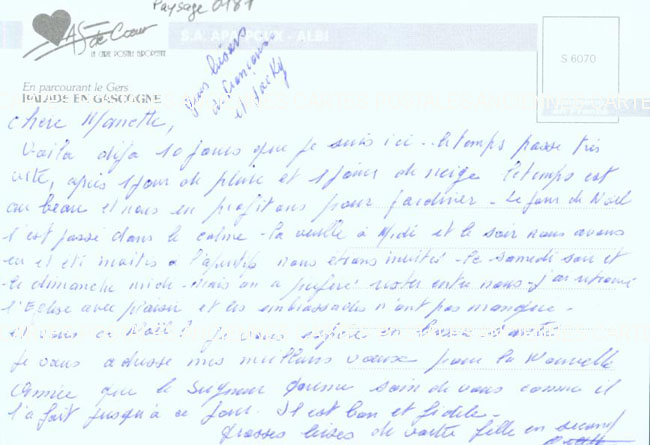 Paysage 0181
As de Coeur
LA CARTE POSTALE EUROPEENNE
S.A. APA-POUX - ALBI
S 6070
En parcourant le Gers
BALADE EN GASCOGNE
gros bisous
de Francoise
et Jacky
chère Manette,
Voilà déjà 10 jours que je suis ici.. le temps passe très
vite, après 1 jour de pluie et 1 jour de neige le temps est
au beau et nous en profitons pour jardiner - Le jour de Noël
s'est passé dans le calme - la veille à Midi et le soir nous avons
été invités à l'apéritif nous étions invités - le samedi soir et
le dimanche midi - mais on a préféré rester entre nous - j'ai retrouvé
l'Eglise avec plaisir et les embrassades n'ont pas manqué -
et vous ce Noël ? je vous espère en bonne santé
je vous adresse mes meilleurs voeux pour la Nouvelle
Année que le Seigneur prenne soin de vous comme il
l'a fait jusqu'à ce jour. Il est bon et fidèle -
Grosses bises de votre fille en second